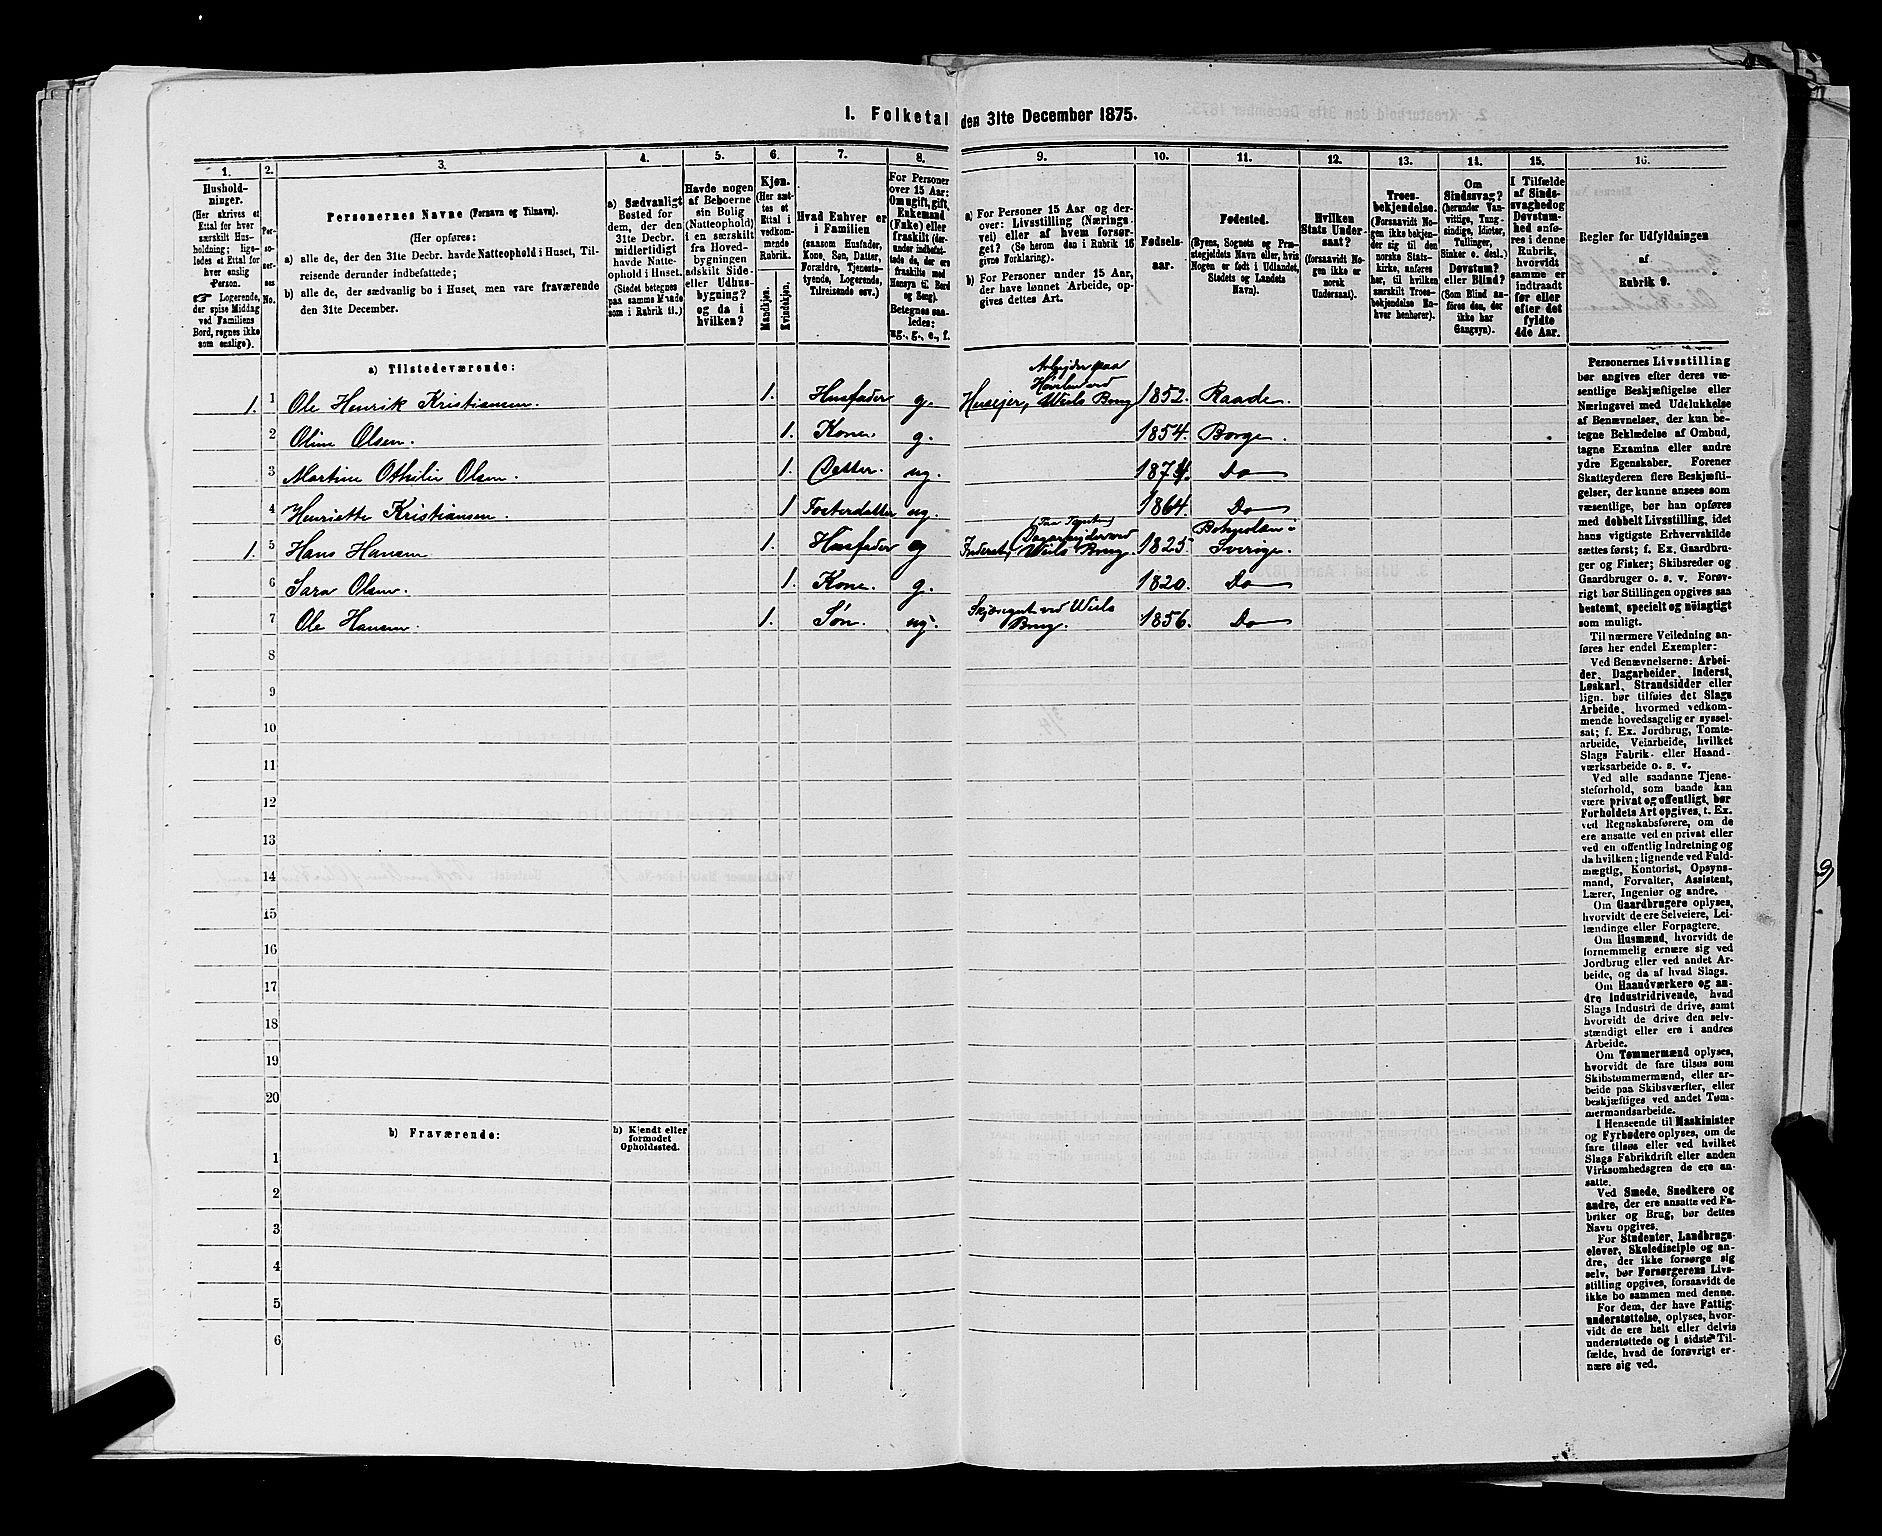 1. Folketal den 31te December 1875.
1.
Hushold-
ninger.
(Her skrives et
Ettal for hver
særskilt Hus-
holdning; lige-
ledes et Ettal for
hver enslig
Person.
Logerende,
der spise Middag
ved Familiens
Bord, regnes ikke
som enslige).
2.
Per-
so-
ner-
nes
No.
3.
Personernes Navne (Fornavn og Tilnavn).
(Her opføres:
a) alle de, der den 31te Decbr. havde Natteophold i Huset, Til-
reisende derunder indbefattede;
b) alle de, der sædvanlig bo i Huset, men vare fraværende
den 31te December.
4.
a) Sædvanligt
Bosted for
dem, der den
31te Decbr.
midlertidigt
havde Natte-
ophold i Huset.
(Stedet betegnes
paa samme Maade
som i Rubrik 11.)
5.
Havde nogen
af Beboerne
sin Bolig
(Natteophold)
i en særskilt
fra Hoved-
bygningen
adskilt Side-
eller Udhus-
bygning?
og da i
hvilken?
6.
Kjøn.
(Her sæt-
tes et
Ettal i
vedkom-
mende
Rubrik.
Mandkjøn.
Kvindekjøn.
7.
Hvad Enhver er
i Familien
(saasom Husfader,
Kone, Søn, Datter,
Forældre, Tjenests-
tyende, Logerende,
Tilreisende osv.)
8.
For Personer
over 15 Aar:
Om ugift, gift,
Enkemand
(Enke) eller
fraskilt
Hensyn til Bord
og Seng).
Betegnes saa-
ledes:
ug., g., e., f.
9.
a) For Personer 15 Aar og der-
over: Livsstilling (Nærings-
vei) eller af hvem forsør-
get? (Se herom den i Rubrik 16
givne Forklaring).
b) For Personer under 15 Aar,
der have lønnet Arbeide, op-
gives dettes Art.
10.
Fødsels-
aar.
11.
Fødested.
(Byens, Sognets og Præ-
stegjeldets Navn eller, hvis
Nogen er født i Udlandet,
Stedets og Landets
Navn).
12.
Hvilken
Stats Under-
saat?
(forsaavidt No-
gen ikke er
norsk
Undersaat).
13.
Troes-
bekjendelse.
(Forsaavidt No-
gen ikke bekjen-
der sig til den
norske Stats-
kirke, anføres
her, til hvilken
særskilt Troes-
bekjendelse En-
hver henhører).
14.
Om
Sindssvag?
(herunder Van-
vittige, Tung-
sindige, Idioter,
Tullinger,
Sinker o. desl.)
Døvstum?
eller Blind?
(Som Blind an-
føres den, der
ikke har
Gangsyn).
15.
I Tilfælde
af Sinds-
svaghed og
Døvstum-
hed anfø-
res i denne
Rubrik,
hvorvidt
samme er
indtraadt
før eller
efter det
fyldte
4de Aar.
16.
Regler for Udfyldningen
af
Rubrik 9.
a) Tilstedeværende:
1. 1 Ole Henrik Kristiansen. 1. Husfader g. Husejer, Arbejder paa Høvleri ved Weels Brug 1852. Raade.
2 Oline Olsen. 1. Kone. g. 1854. Borge.
3 Martine Othilie Olsen. 1. Datter. ug. 1874. Do
4 Henriette Kristiansen. 1 Fosterdatter ug. 1864. Do
1. 5 Hans Hansen 1. Husfader g Inderst, (Paa Tomten) Dagarbejder ved Weels Brug. 1825 Bohuslän i Sverige.
6 Sara Olsen. 1. Kone. g. 1820. Do
7 Ole Hansen. 1. Søn. ug. ved Weels Brug. 1856. Do
8
9
10
11
12
13
14
15
16
17
18
19
20
b) Fraværende:
b) Kjendt eller
formodet
Opholdssted.
1
2
3
4
5
6
Personernes Livsstilling
bør angives efter deres væ-
sentlige Beskjæftigelse eller
Næringsvei med Udelukkelse
af Benævnelser, der kun be-
tegne Beklædelse af Ombud,
tagne Examina eller andre
ydre Egenskaber. Forener
Skatteyderen flere Beskjæfti-
gelser, der kunne ansees som
væsentlige, bør han opføres
med dobbelt Livsstilling, idet
hans vigtigste Erhvervskilde
sættes først; f. Ex. Gaardbru-
ger og Fisker; Skibsreder og
Gaardbruger o. s. v. Forøv-
rigt bør Stillingen opgives saa
bestemt, specielt og nøiagtigt
som muligt.
Til nærmere Veiledning an-
føres her endel Exempler:
Ved Benævnelserne: Arbei-
der, Dagarbeider, Inderst,
Løskarl, Strandsidder eller
lign. bør tilføies det Slags
Arbeide, hvormed vedkom-
mende hovedsagelig er syssel-
sat; f. Ex. Jordbrug, Tomte-
arbeide, Veiarbeide, hvilket
Slags Fabrik- eller Haand-
værksarbeide o. s. v.
Ved alle saadanne Tjene-
steforhold, som baade kan
være privat og offentligt, bør
Forholdets Art opgives, t. Ex.
ved Regnskabsførere, om de
ere ansatte ved en privat eller
ved en offentlig Indretning og
da hvilken; lignende ved Fuld-
mægtig, Kontorist, Opsyns-
mand, Forvalter, Assistent,
Lærer, Ingeniør og andre.
Om Gaardbrugere oplyses,
hvorvidt de ere Selveiere, Lei-
lændinge eller Forpagtere.
Om Husmænd, hvorvidt de
fornemmelig ernære sig ved
Jordbrug eller ved andet Ar-
beide, og da af hvad Slags.
Om Haandværkere og an-
dre Industridrivende, hvad
Slags Industri de drive, samt
hvorvidt de drive den selv-
stændigt eller ere i andres
Arbeide.
Om Tømmermænd oplyses,
hvorvidt de fare tilsøs som
Skibstømmermænd, eller ar-
beide paa Skibsværfter, eller
beskjæftiges ved andet Tøm-
mermandsarbeide.
I Henseende til Maskinister
og Fyrbødere oplyses, om de
fare tilsøs eller ved hvilket
Slags Fabrikdrift eller anden
Virksomhedsgren de ere an-
satte.
Ved Smede, Snedkere og
andre, der ere ansatte ved Fa-
briker og Brug, bør dettes
Navn opgives.
For Studenter, Landbrugs-
elever, Skoledisciple og an-
dre, der ikke forsørge sig
selv, bør Forsørgerens Livs-
stilling opgives, forsaavidt de
ikke bo sammen med denne.
For dem, der have Fattig-
understøttelse, oplyses, hvor-
vidt de ere helt eller delvis
understøttede og i sidste Til-
fælde, hvad de forøvrigt er-
nære sig ved.